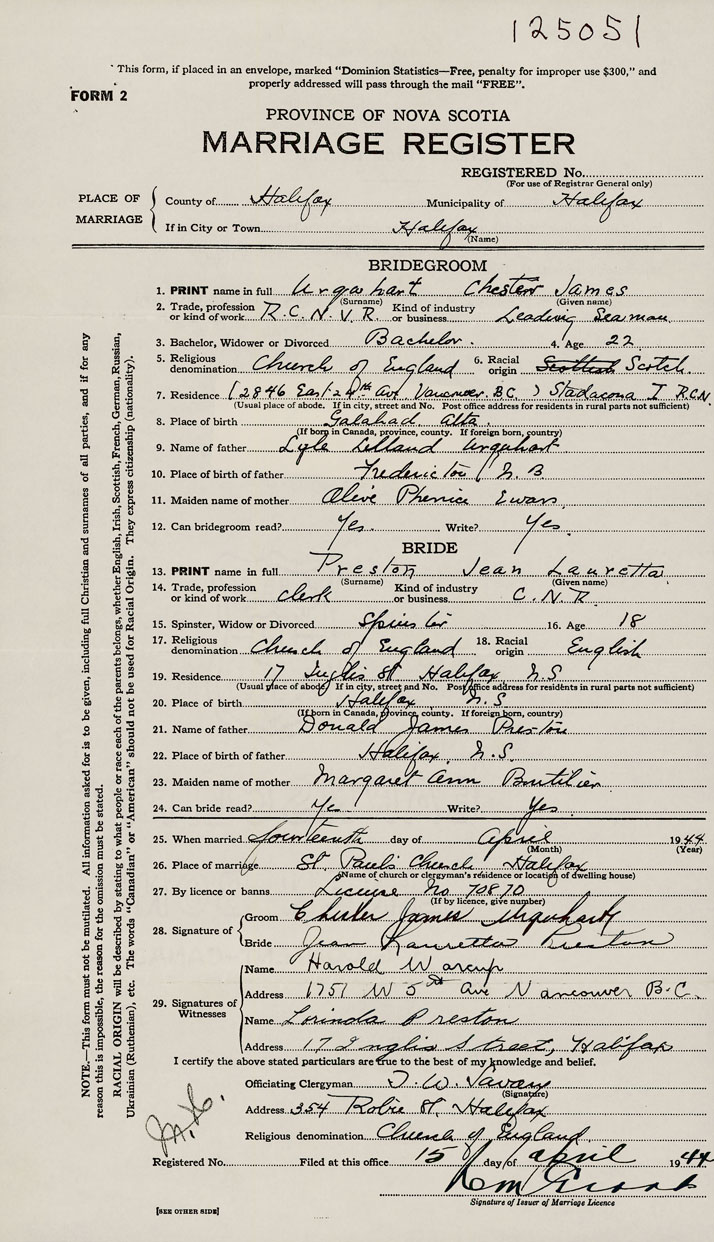 125051
This form, if placed in an envelope, marked "Dominion Statistics—Free, penalty for improper use $300," and
properly addressed will pass through the mail "FREE".
FORM 2
PROVINCE OF NOVA SCOTIA
MARRIAGE REGISTER
REGISTERED No.
(For use of Registrar General only)
PLACE OF MARRIAGE
County of Halifax Municipality of Halifax
If in City or Town Halifax
(Name)
BRIDEGROOM
1. PRINT name in full Urquhart Chester James
(Surname) (Given name)
2. Trade, profession or kind of work R.C.N.V.R. Kind of industry or business Leading Seaman
3. Bachelor, Widower or Divorced Bachelor. 4. Age 22
5. Religious denomination Church of England 6. Racial origin Scottish Scotch.
7. Residence (2846 East 24th Ave Vancouver. B.C.) Stadacona I R.C.N.
(Usual place of abode. If in city, street and No. Post office address for residents in rural parts not sufficient)
8. Place of birth Galahad Alta.
(If born in Canada, province, county. If foreign born, country)
9. Name of father Lyle Lelland Urquhart
10. Place of birth of father Fredericton N.B
11. Maiden name of mother Olive Phenice Ewars
12. Can bridegroom read? Yes. Write? Yes.
BRIDE
13. PRINT name in full Preston Jean Lauretta
(Surname) (Given name)
14. Trade, profession or kind of work clerk Kind of industry or business C.N.R.
15. Spinster, Widow or Divorced Spinster 16. Age 18
17. Religious denomination Church of England 18. Racial origin English
19. Residence 17 Inglis St Halifax N.S
(Usual place of abode. If in city, street and No. Post office address for residents in rural parts not sufficient)
20. Place of birth Halifax N.S.
(If born in Canada, province, county. If foreign born, country)
21. Name of father Donald James Preston
22. Place of birth of father Halifax, N.S.
23. Maiden name of mother Margaret Ann Boutilier
24. Can bride read? Yes Write? Yes
25. When married fourteenth day of April 1944
(Month) (Year)
26. Place of marriage St. Paul's Church Halifax
(Name of church or clergyman's residence or location of dwelling house)
27. By licence or banns License No 70870
(If by licence, give number)
28. Signature of
Groom Chester James Urquhart
Bride Jean Lauretta Preston
29. Signatures of Witnesses
Name Harold Warcup
Address 1751 W 5th Ave Vancouver B.C.
Name Lorinda Preston
Address 17 Inglis Street, Halifax
I certify the above stated particulars are true to the best of my knowledge and belief.
Officiating Clergyman T. W. Savary
(Signature)
Address 354 Robie St. Halifax
Religious denomination Church of England
Registered No. Filed at this office 15 day of april 1944
Signature of Issuer of Marriage Licence
[SEE OTHER SIDE]
NOTE.—This form must not be mutilated. All information asked for is to be given, including full Christian and surnames of all parties, and if for any
reason this is impossible, the reason for the omission must be stated.
RACIAL ORIGIN will be described by stating to what people or race each of the parents belongs, whether English, Irish, Scottish, French, German, Russian,
Ukrainian (Ruthenian), etc. The words "Canadian" or "American" should not be used for Racial Origin. They express citizenship (nationality).